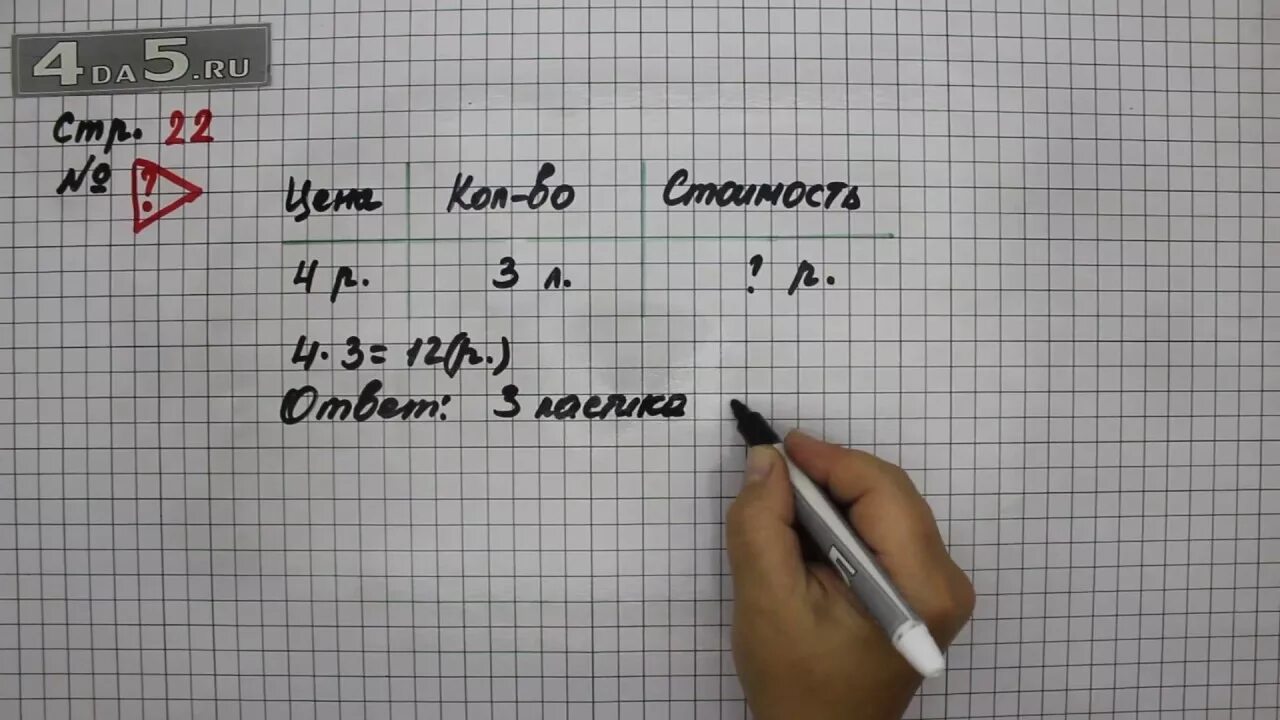 4DA5.RU
Стр. 22
№ ?
Цена Кол-во Стоимость
4 р. 3 л. ? р.
4 · 3 = 12(р.)
Ответ: 3 ластика